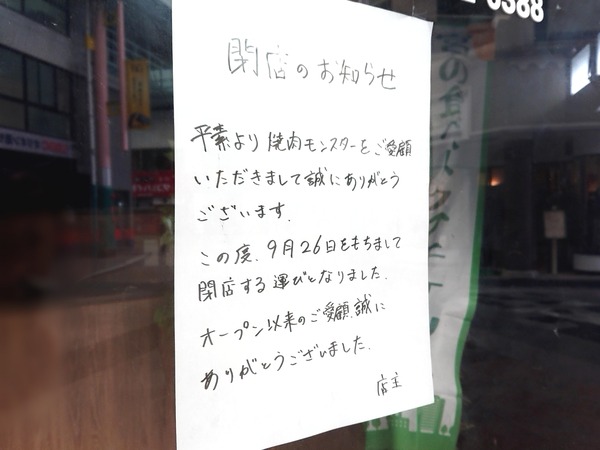 閉店のお知らせ
平素より焼肉モンスターをご愛顧
いただきまして誠にありがとう
ございます.
この度、9月26日をもちまして
閉店する運びとなりました.
オープン以来のご愛顧、誠に
ありがとうございました.
店主